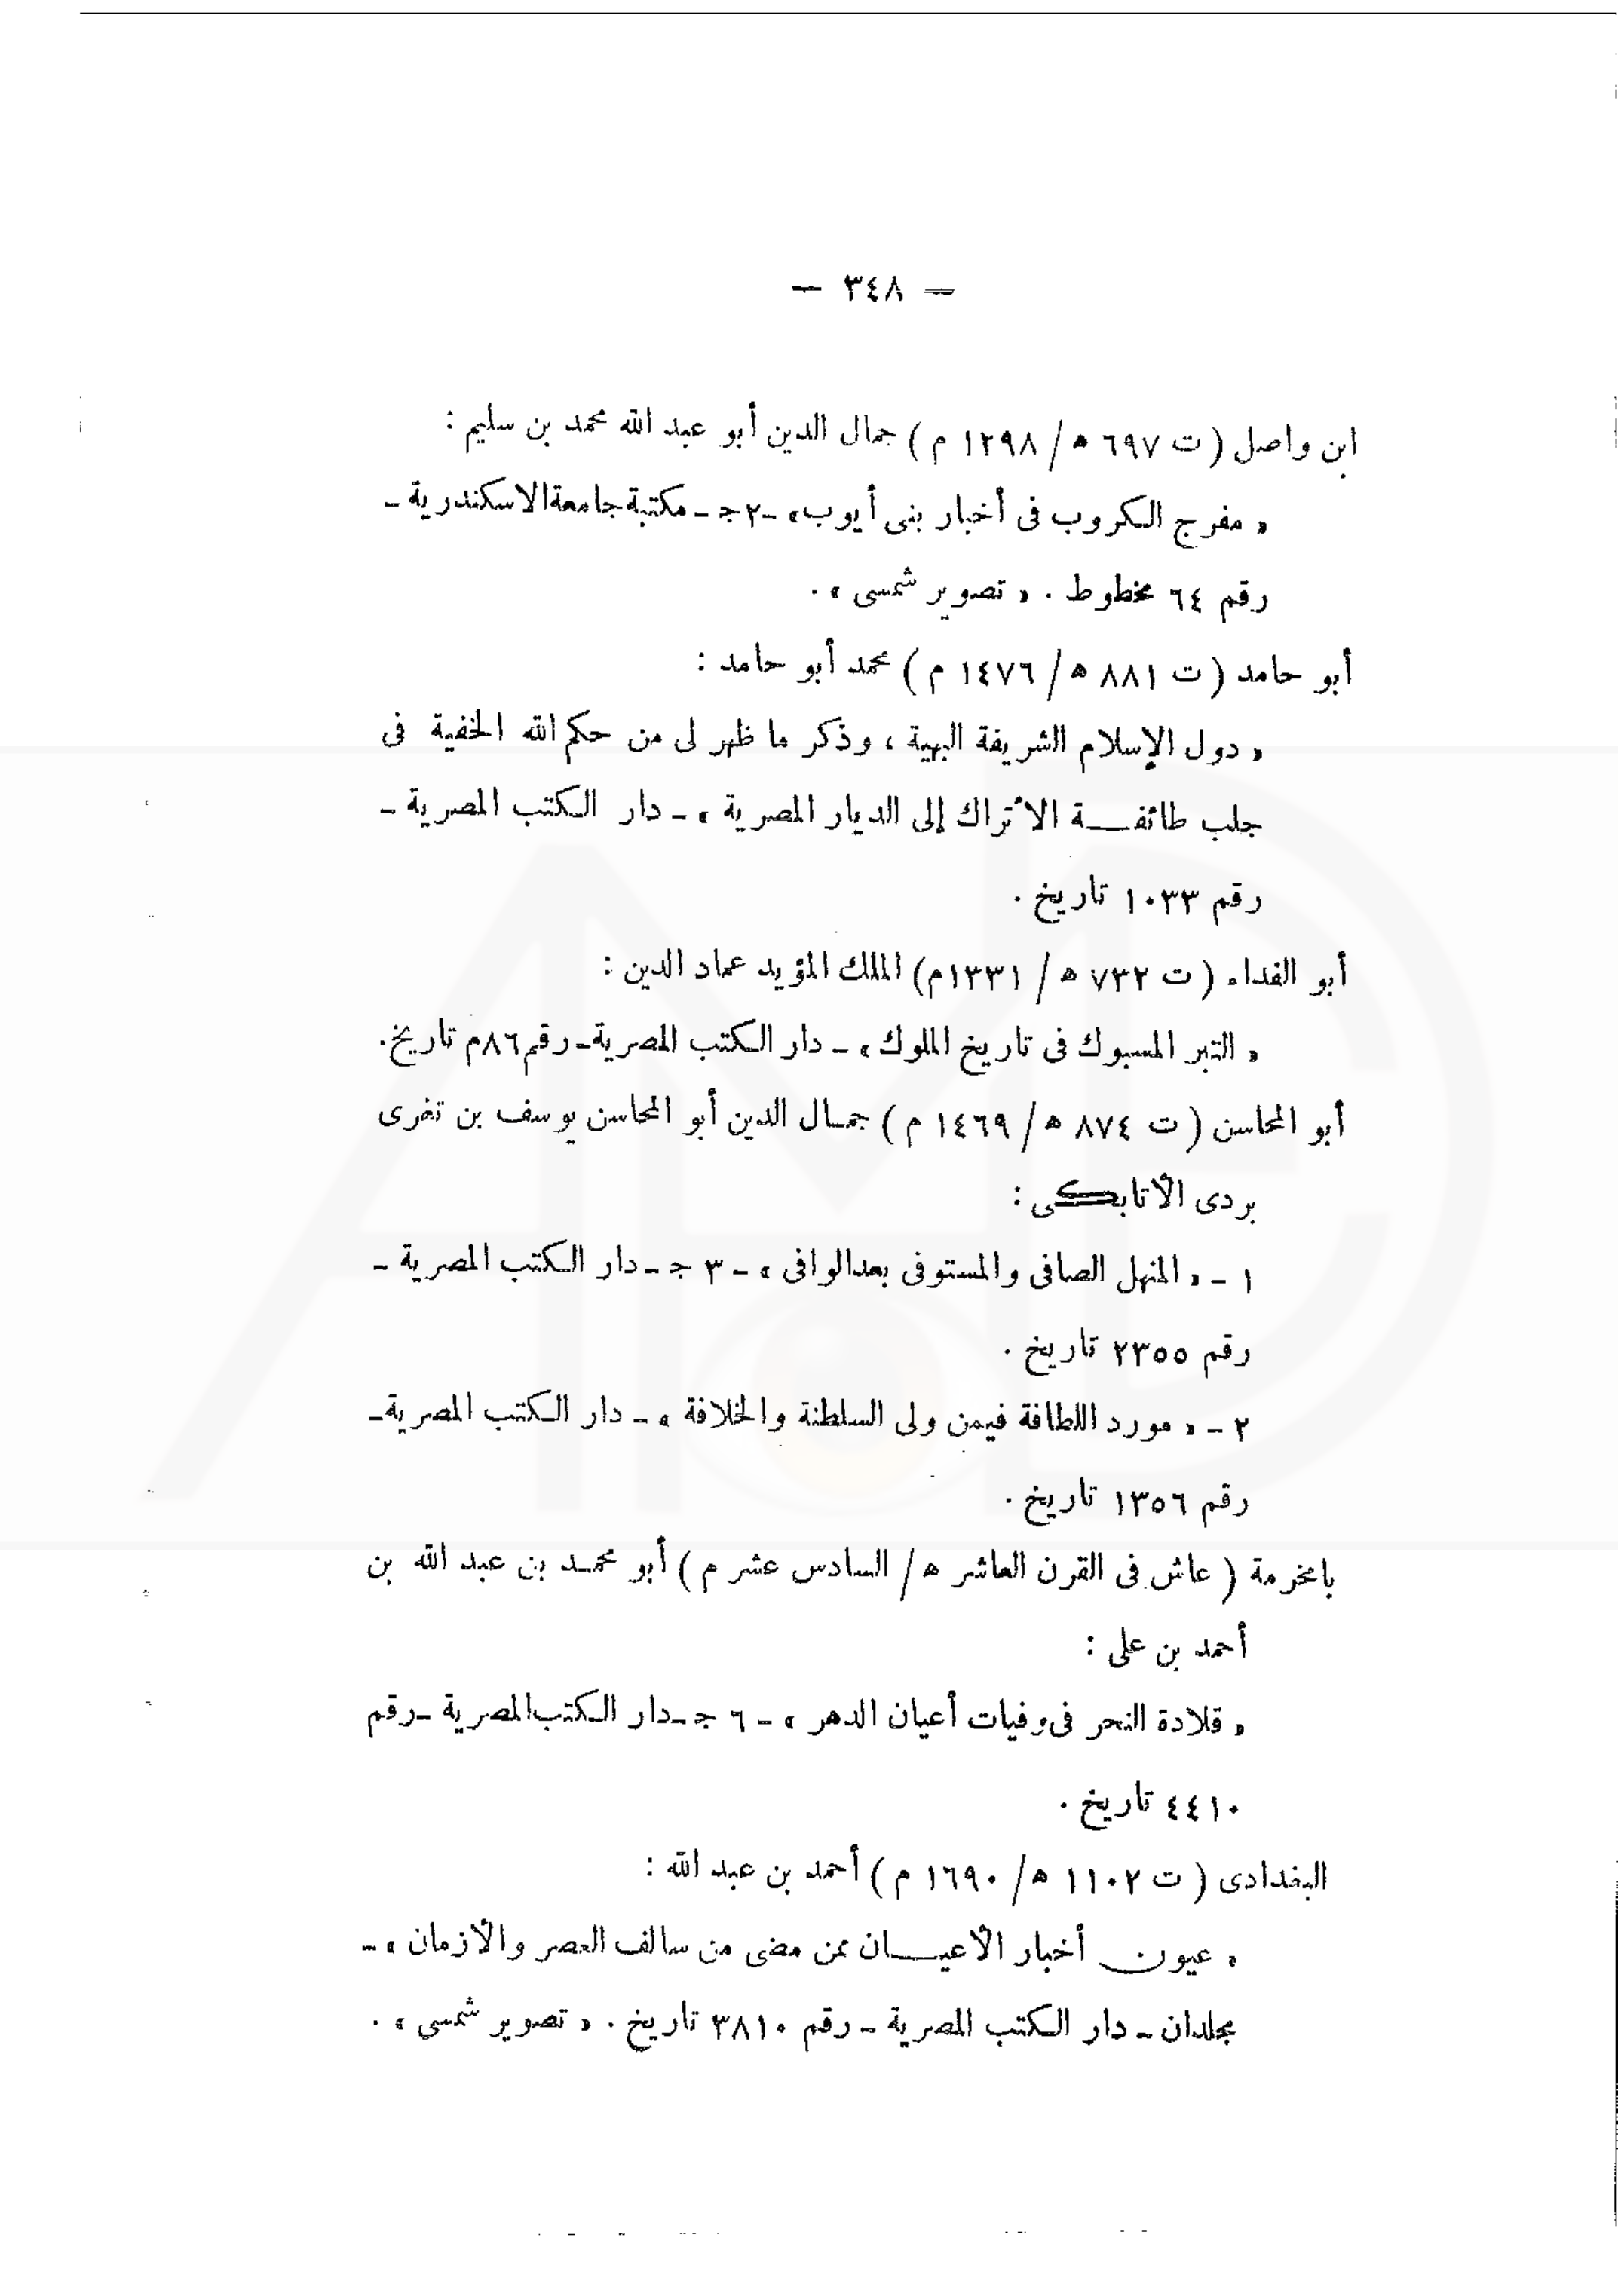 — ٣٤٨ —
ابن واصل ( ت ٦٩٧ ھ / ١٢٩٨ م ) جمال الدين أبو عبد الله محمد بن سليم :
« مفرج الكروب فى أخبار بنى أيوب» -٢ج- مكتبة جامعة الاسكندرية -
رقم ٦٤ مخطوط . « تصوير شمسى » .
أبو حامد ( ت ٨٨١ ھ / ١٤٧٦ م ) محمد أبو حامد :
« دول الإسلام الشريفة البهية ، وذكر ما ظهر لى من حكم الله الخفية فى
جلب طائفــة الأتراك إلى الديار المصرية » - دار الكتب المصرية -
رقم ١٠٣٣ تاريخ .
أبو الفداء ( ت ٧٣٢ ھ / ١٣٣١م) الملك المؤيد عماد الدين :
« التبر المسبوك فى تاريخ الملوك » - دار الكتب المصرية- رقم ٨٦م تاريخ.
أبو المحاسن ( ت ٨٧٤ ھ / ١٤٦٩ م ) جمـال الدين أبو المحاسن يوسف بن تغرى
بردى الأتابكى :
١ - « المنهل الصافى والمستوفى بعدالوافى » - ٣ ج - دار الكتب المصرية -
رقم ٢٣٥٥ تاريخ .
٢ - « مورد اللطافة فيمن ولى السلطنة والخلافة » - دار الكتب المصرية-
رقم ١٣٥٦ تاريخ .
بامخرمة ( عاش فى القرن العاشر ھ / السادس عشر م ) أبو محمـد بن عبد الله بن
أحمد بن على :
« قلادة النحر فى وفيات أعيان الدهر » - ٦ ج -دار الكتب المصرية -رقم
٤٤١٠ تاريخ .
البغدادى ( ت ١١٠٢ ھ / ١٦٩٠ م ) أحمد بن عبد الله :
« عيون أخبار الأعيـــان ممن مضى من سالف العصر والأزمان » -
مجلدان - دار الكتب المصرية - رقم ٣٨١٠ تاريخ . « تصوير شمسى » .